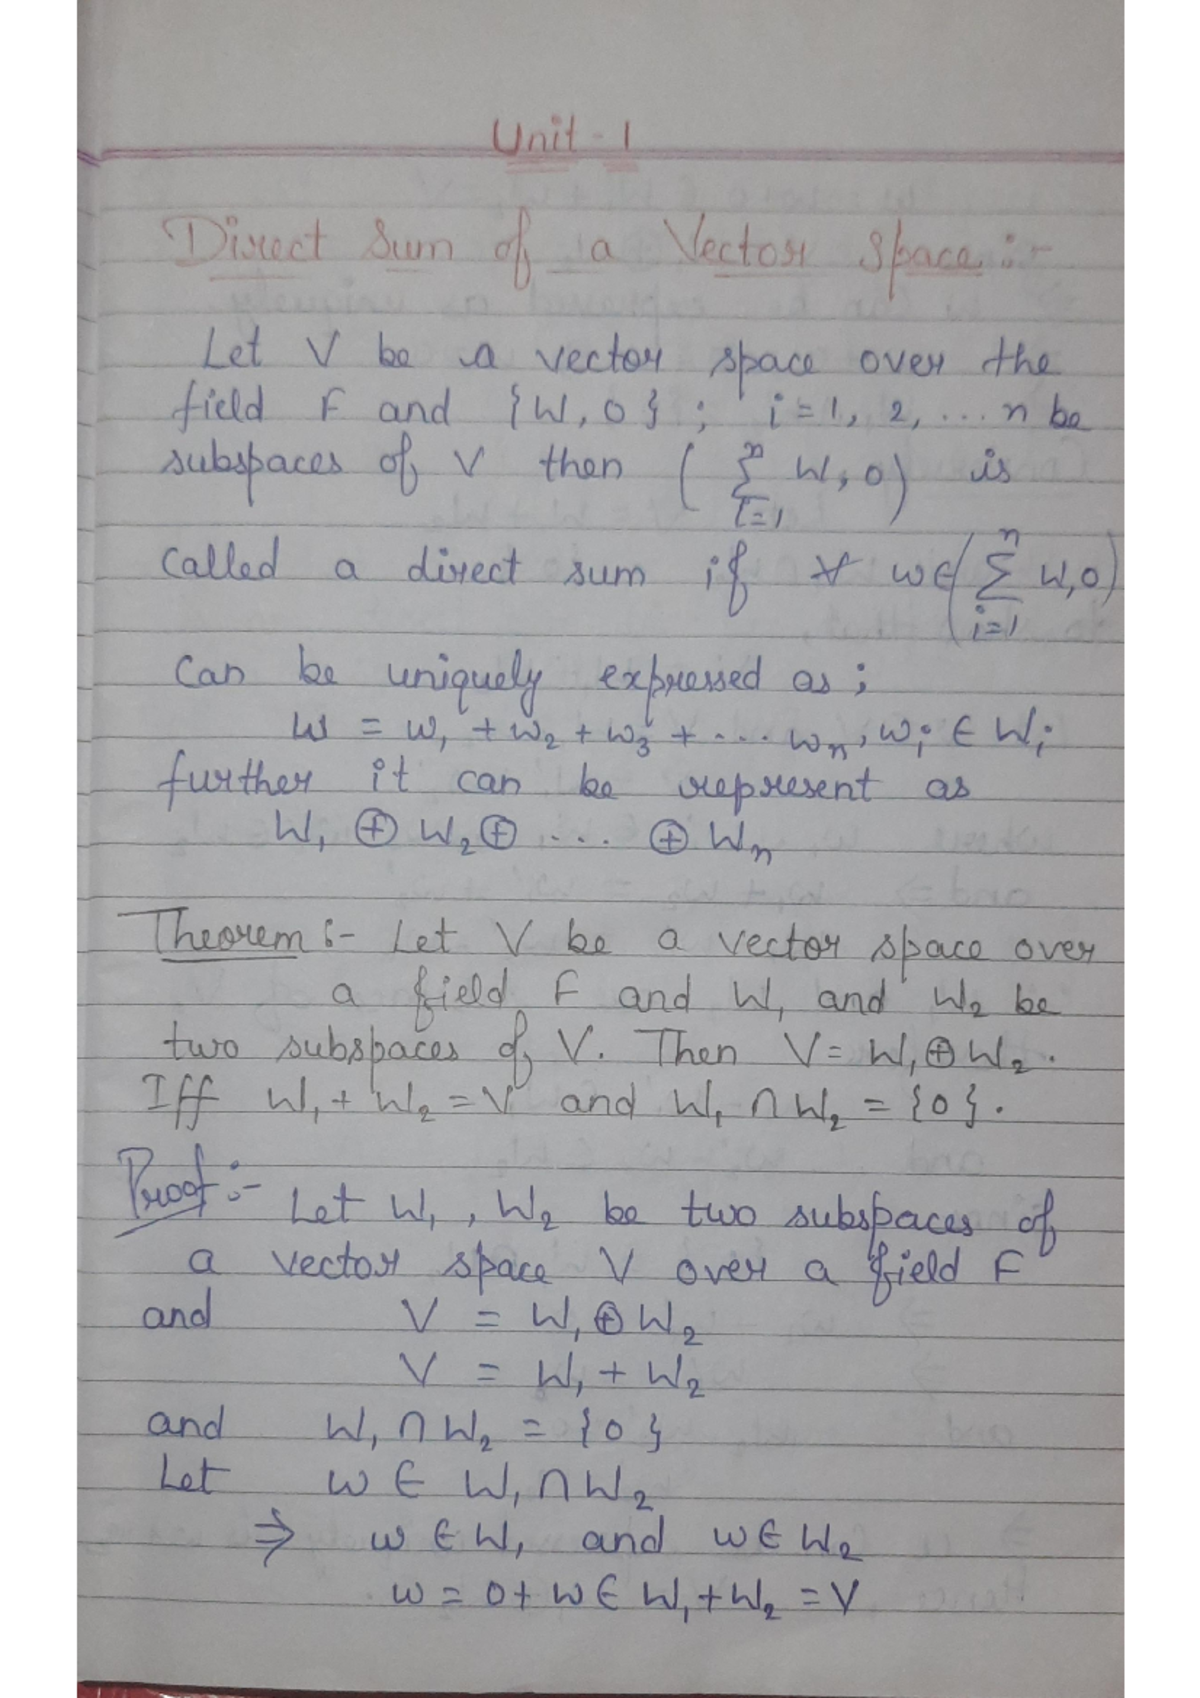 Unit - 1
Direct Sum of a Vector Space :-
Let V be a vector space over the
field F and {W, 0} ; i = 1, 2, ... n be
subspaces of V then ( n∑i=1 W, 0) is
called a direct sum if ∀ w ∈ ( n∑i=1 W, 0)
can be uniquely expressed as ;
w = w₁ + w₂ + w₃ + ... wₙ, wᵢ ∈ Wᵢ
further it can be represent as
W₁ ⊕ W₂ ⊕ ... ⊕ Wₙ
Theorem :- Let V be a vector space over
a field F and W₁ and W₂ be
two subspaces of V. Then V = W₁ ⊕ W₂.
Iff W₁ + W₂ = V and W₁ ∩ W₂ = {0}.
Proof :- Let W₁, W₂ be two subspaces of
a vector space V over a field F
and V = W₁ ⊕ W₂
V = W₁ + W₂
and W₁ ∩ W₂ = {0}
Let w ∈ W₁ ∩ W₂
⇒ w ∈ W₁ and w ∈ W₂
w = 0 + w ∈ W₁ + W₂ = V